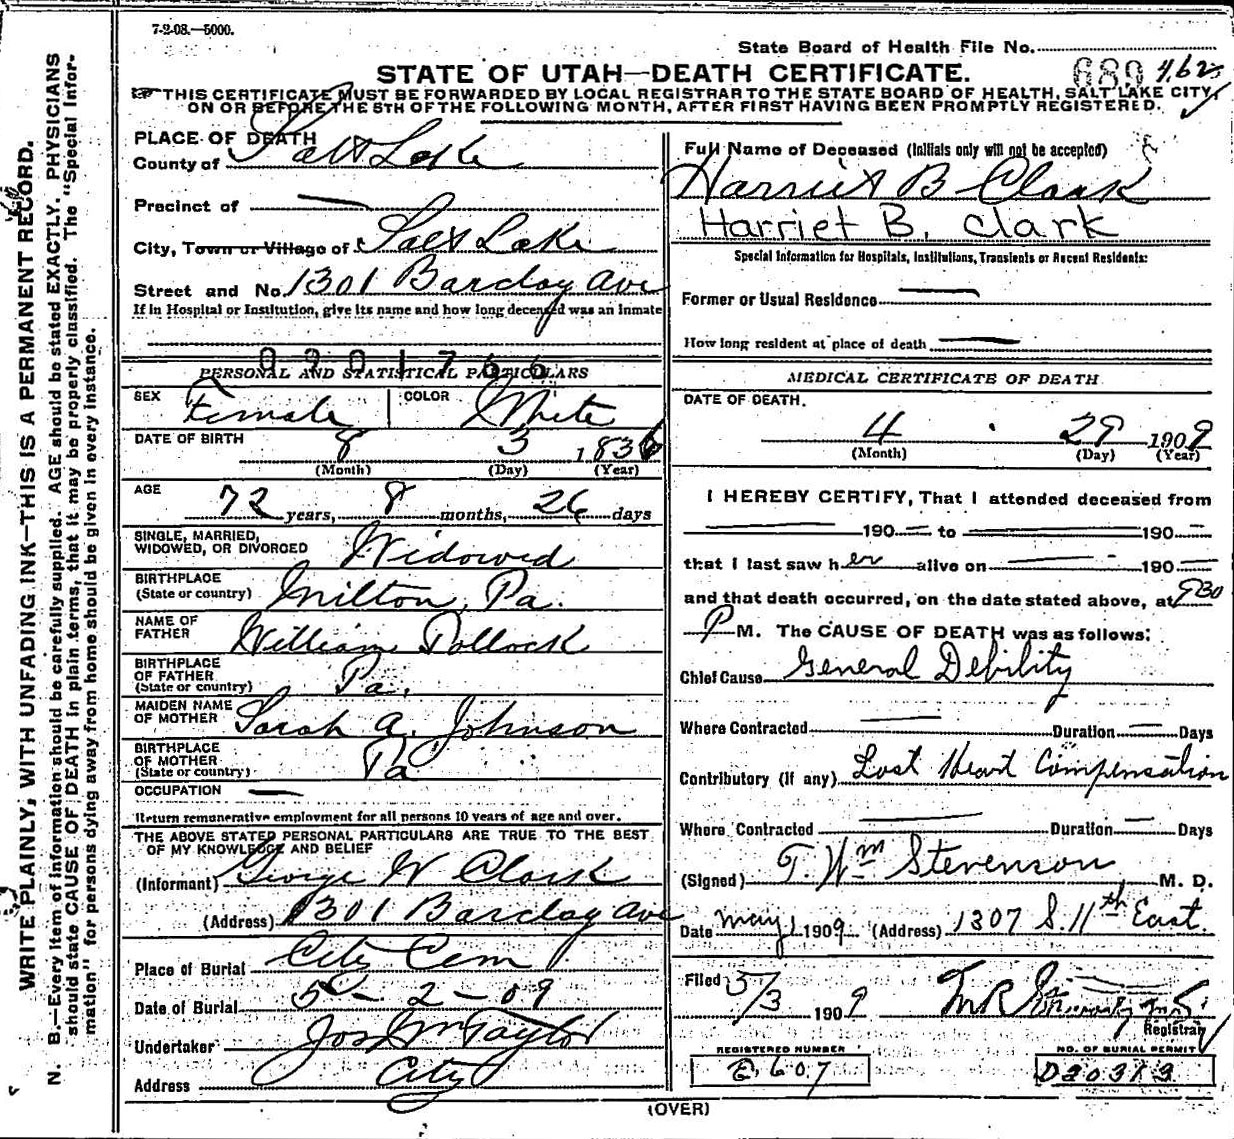 7-2-08.—5000.
State Board of Health File No.
STATE OF UTAH—DEATH CERTIFICATE.
689 462
THIS CERTIFICATE MUST BE FORWARDED BY LOCAL REGISTRAR TO THE STATE BOARD OF HEALTH, SALT LAKE CITY,
ON OR BEFORE THE 5TH OF THE FOLLOWING MONTH, AFTER FIRST HAVING BEEN PROMPTLY REGISTERED.
WRITE PLAINLY, WITH UNFADING INK—THIS IS A PERMANENT RECORD.
N. B.—Every item of information should be carefully supplied. AGE should be stated EXACTLY. PHYSICIANS
should state CAUSE OF DEATH in plain terms, that it may be properly classified. The "Special Infor-
mation" for persons dying away from home should be given in every instance.
PLACE OF DEATH
County of Salt Lake
Precinct of —
City, Town or Village of Salt Lake
Street and No. 1301 Barclay Ave
If in Hospital or Institution, give its name and how long deceased was an inmate
0901766
PERSONAL AND STATISTICAL PARTICULARS
SEX Female COLOR White
DATE OF BIRTH 8 3 1836
(Month) (Day) (Year)
AGE 72 years, 8 months, 26 days
SINGLE, MARRIED,
WIDOWED, OR DIVORCED Widowed
BIRTHPLACE
(State or country) Milton, Pa.
NAME OF
FATHER William Pollock
BIRTHPLACE
OF FATHER
(State or country) Pa.
MAIDEN NAME
OF MOTHER Sarah A. Johnson
BIRTHPLACE
OF MOTHER
(State or country) Pa
OCCUPATION —
Return remunerative employment for all persons 10 years of age and over.
THE ABOVE STATED PERSONAL PARTICULARS ARE TRUE TO THE BEST
OF MY KNOWLEDGE AND BELIEF
(Informant) George W Clark
(Address) 1301 Barclay Ave
Place of Burial City Cem
Date of Burial 5 - 2 - 09
Undertaker Jos Wm Taylor
Address City
Full Name of Deceased (Initials only will not be accepted)
Harriet B Clark
Harriet B. Clark
Special Information for Hospitals, Institutions, Transients or Recent Residents:
Former or Usual Residence —
How long resident at place of death —
MEDICAL CERTIFICATE OF DEATH
DATE OF DEATH.
4 29 1909
(Month) (Day) (Year)
I HEREBY CERTIFY, That I attended deceased from
— 190— to — 190—
that I last saw her alive on — 190—
and that death occurred, on the date stated above, at 930
P M. The CAUSE OF DEATH was as follows:
Chief Cause General Debility
Where Contracted — Duration — Days
Contributory (if any) Lost Heart Compensation
Where Contracted — Duration — Days
(Signed) T. Wm Stevenson M. D.
Date May 1 1909 (Address) 1307 S. 11th East
Filed 5/3 1909
Registrar
REGISTERED NUMBER
E 607
NO. OF BURIAL PERMIT
D20313
(OVER)